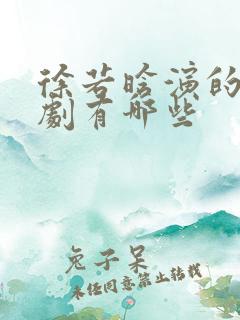 徐若晗演的
劇有哪些
兔子呆
未经同意禁止转载